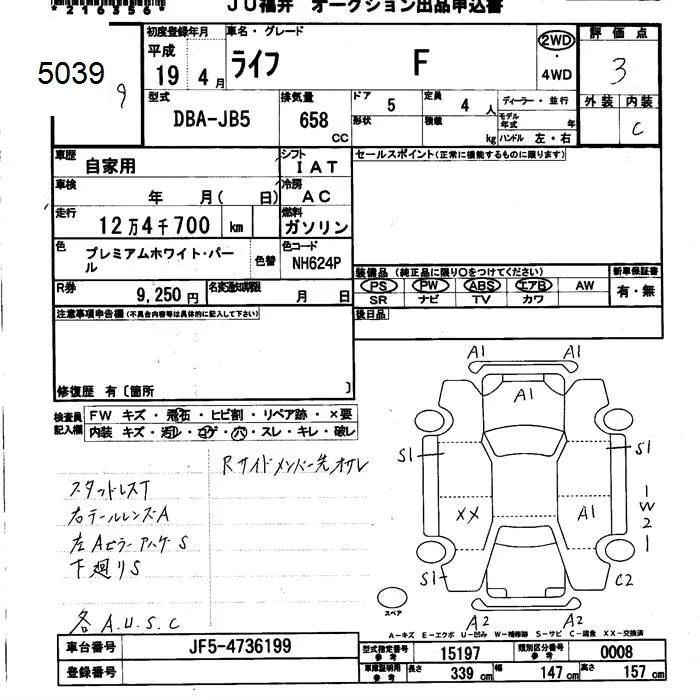 *216356*
JU福井 オークション出品申込書
5039
9
初度登録年月
平成
19 4月
車名・グレード
ライフ F
2WD
4WD
評価点
3
外装 内装
C
型式
DBA-JB5
排気量
658 CC
ドア 5
定員 4 人
形状
積載 kg
ディーラー・並行
モデル年式 年
ハンドル 左・右
車歴
自家用
シフト
IAT
セールスポイント(正常に機能するものに限ります)
車検
年 月( 日)
冷房
AC
走行
12万4千700 km
燃料
ガソリン
色
プレミアムホワイト・パール
色替
色コード
NH624P
装備品 (純正品に限り○をつけてください)
新車保証書
PS PW ABS エアB AW
有・無
SR ナビ TV カワ
R券
9,250円
名変通知期限
月 日
注意事項申告欄(不具合内容等は具体的に記入して下さい)
後日品
修復歴 有〔箇所 〕
検査員記入欄
FW キズ・飛石・ヒビ割・リペア跡・×要
内装 キズ・汚レ・コゲ・穴・スレ・キレ・破レ
Rサイドメンバー先オサレ
スタッドレスT
右テールレンズA
左Aピラーアハゲ S
下廻りS
各 A.U.S.C
A1 A1
A1
S1 S1
XX A1
W2
S1 C2
A2 A2
スペア
A-キズ E-エクボ U-凹み W-補修跡 S-サビ C-腐食 XX-交換済
車台番号
JF5-4736199
型式指定番号
参考
15197
類別区分番号
参考
0008
登録番号
車庫証明用
参考
長さ 339 cm
幅 147 cm
高さ 157 cm